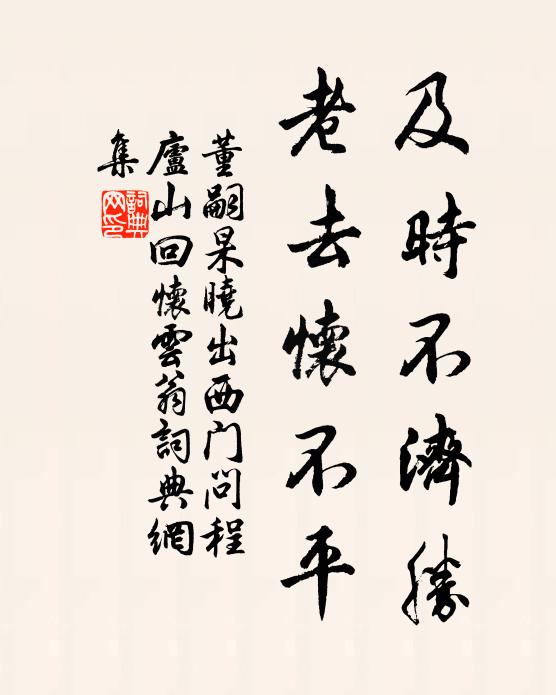 及時不濟勝
老去懷不平
董嗣杲曉出西门問程
廬山回懷雲翁詞典網
集
詞典网印